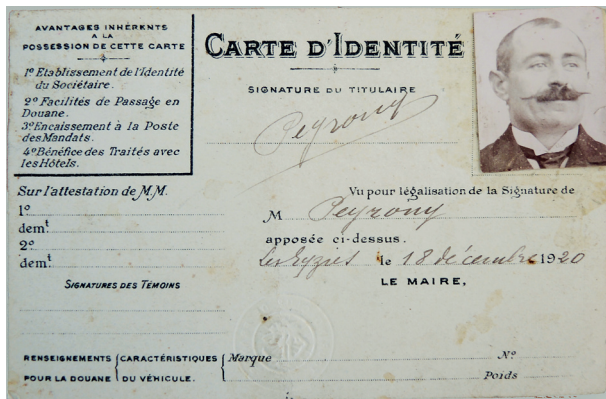 AVANTAGES INHÉRENTS
A LA
POSSESSION DE CETTE CARTE
1º Etablissement de l'Identité
du Sociétaire.
2º Facilités de Passage en
Douane.
3º Encaissement à la Poste
des Mandats.
4º Bénéfice des Traités avec
les Hôtels.
CARTE D'IDENTITÉ
SIGNATURE DU TITULAIRE
Peyrony
Sur l'attestation de M.M.
1º
demt
2º
demt
SIGNATURES DES TÉMOINS
Vu pour légalisation de la Signature de
M Peyrony
apposée ci-dessus.
Les Eyzies le 18 décembre 1920
LE MAIRE,
RENSEIGNEMENTS CARACTÉRISTIQUES Marque Nº
POUR LA DOUANE DU VÉHICULE. Poids